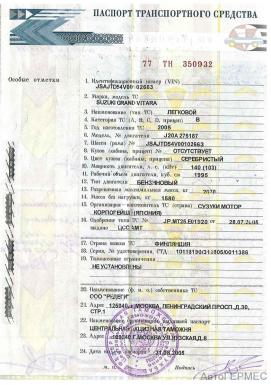 ПАСПОРТ ТРАНСПОРТНОГО СРЕДСТВА
77 ТН 350932
Особые отметки
1. Идентификационный номер (VIN)
JSAJTD54V00102663
2. Марка, модель ТС
SUZUKI GRAND VITARA
3. Наименование (тип ТС) ЛЕГКОВОЙ
4. Категория ТС (A, B, C, D, прицеп) B
5. Год изготовления ТС 2005
6. Модель, № двигателя J20A 275187
7. Шасси (рама) № JSAJTD54V00102663
8. Кузов (кабина, прицеп) № ОТСУТСТВУЕТ
9. Цвет кузова (кабины, прицепа) СЕРЕБРИСТЫЙ
10. Мощность двигателя, л. с. (кВт) 140 (103)
11. Рабочий объем двигателя, куб. см 1995
12. Тип двигателя БЕНЗИНОВЫЙ
13. Разрешенная максимальная масса, кг 2070
14. Масса без нагрузки, кг 1580
15. Организация-изготовитель ТС (страна) СУЗУКИ МОТОР
КОРПОРЕЙШН (ЯПОНИЯ)
16. Одобрение типа ТС №
17. Страна вывоза ТС ФИНЛЯНДИЯ
18. Серия, № ТД, ТПО
19. Таможенные ограничения
НЕ УСТАНОВЛЕНЫ
20. Наименование (ф. и. о.) собственника ТС
21. Адрес МОСКВА, ЛЕНИНГРАДСКИЙ ПРОСП., Д.30,
СТР.1
22. Наименование организации, выдавшей паспорт
ЦЕНТРАЛЬНАЯ АКЦИЗНАЯ ТАМОЖНЯ
23. Адрес
24. Дата выдачи паспорта 31.08.2005
М. П. Подпись
АвтоГЕРМЕС